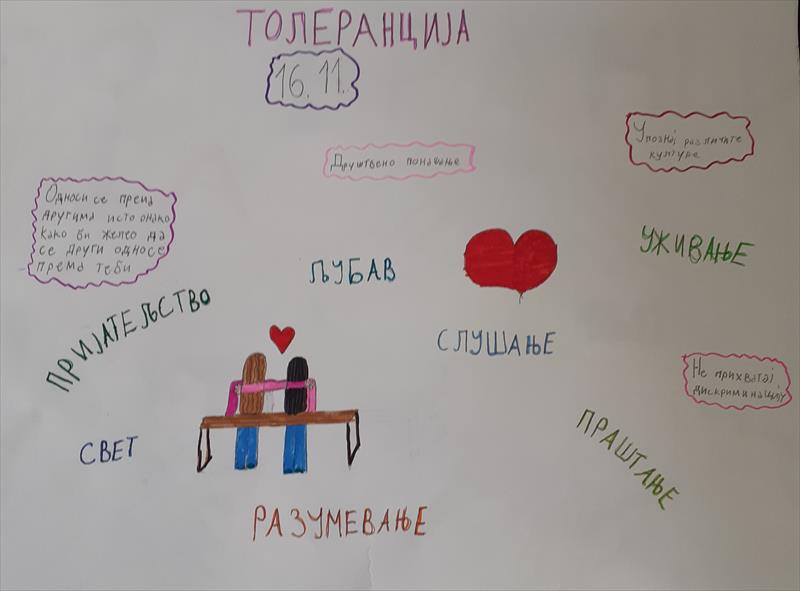 ТОЛЕРАНЦИЈА
16. 11.
Друштвено понашање
Упознај различите
културе
Односи се према
другима исто онако
како би желео да
се други односе
према теби
УЖИВАЊЕ
ЉУБАВ
ПРИЈАТЕЉСТВО
СЛУШАЊЕ
Не прихватај
дискриминацију
ПРАШТАЊЕ
СВЕТ
РАЗУМЕВАЊЕ